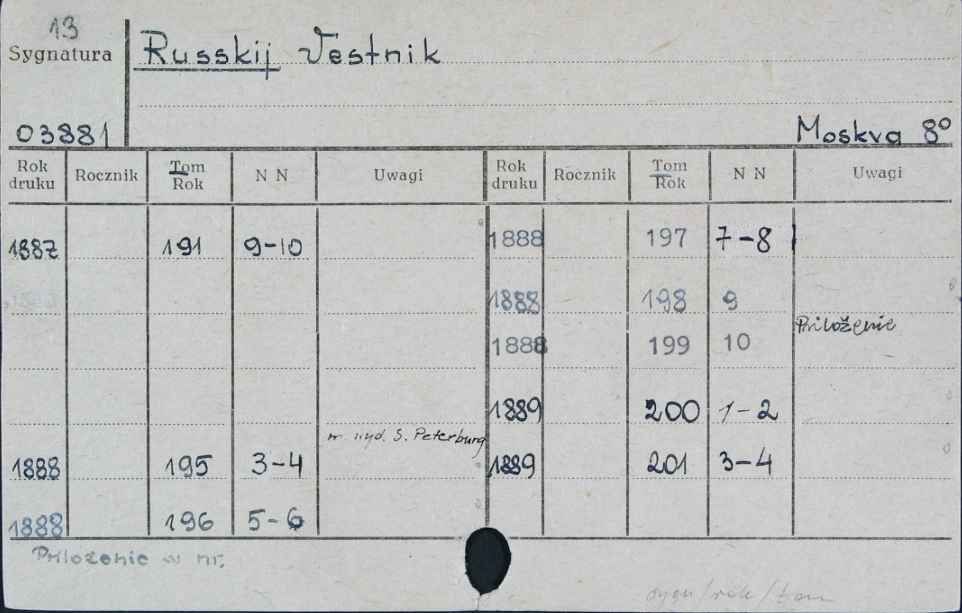 13
Sygnatura
Russkij Vestnik
03881
Moskva 8°
Rok druku Rocznik Tom Rok N N Uwagi Rok druku Rocznik Tom Rok N N Uwagi
1887 191 9-10 1888 197 7-8
1888 198 9
Priloženie
1888 199 10
1889 200 1-2
wyd. S. Peterburg
1888 195 3-4 1889 201 3-4
1888 196 5-6
Priloženie w nr.
sygn/rok/tom